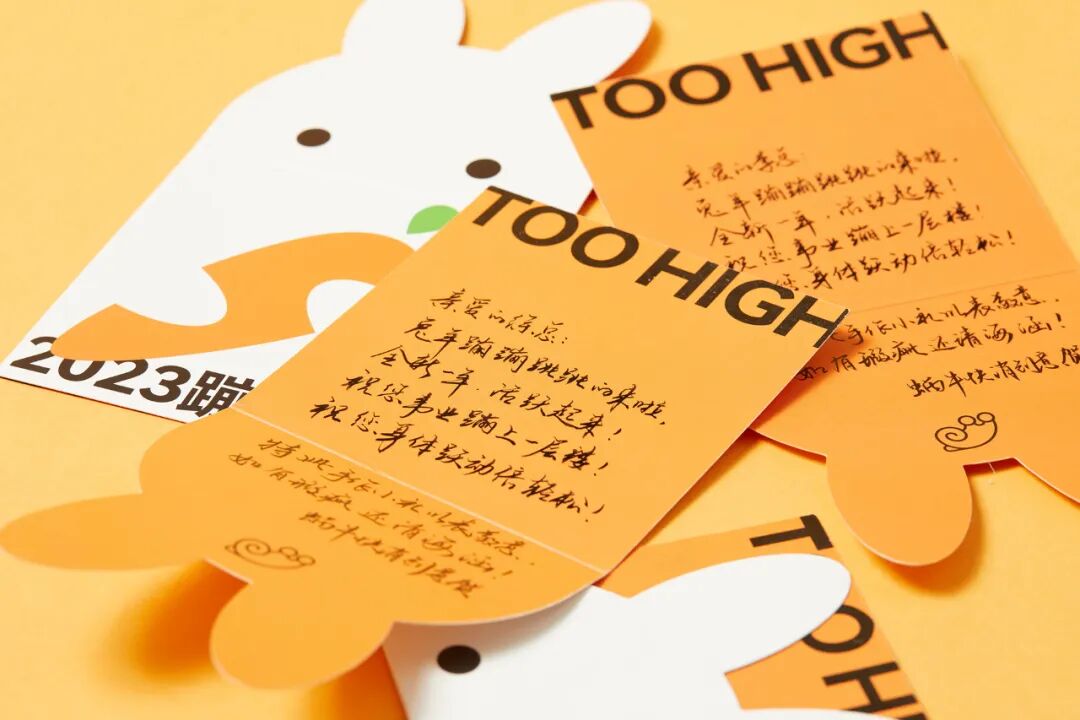 2023蹦
TOO HIGH
亲爱的总:
兔年蹦蹦跳跳的来啦,
全新一年,活跃起来!
祝您事业蹦上一层楼!
祝您身体跃动倍轻松!
特此手作小礼以表敬意,
如有瑕疵还请海涵!
蜗牛快消
TOO HIGH
亲爱的李总:
兔年蹦蹦跳跳的来啦,
全新一年,活跃起来!
祝您事业蹦上一层楼!
您身体跃动倍轻松!
手作小礼以表敬意,
如有瑕疵还请海涵!
蜗牛快消
TOO HI